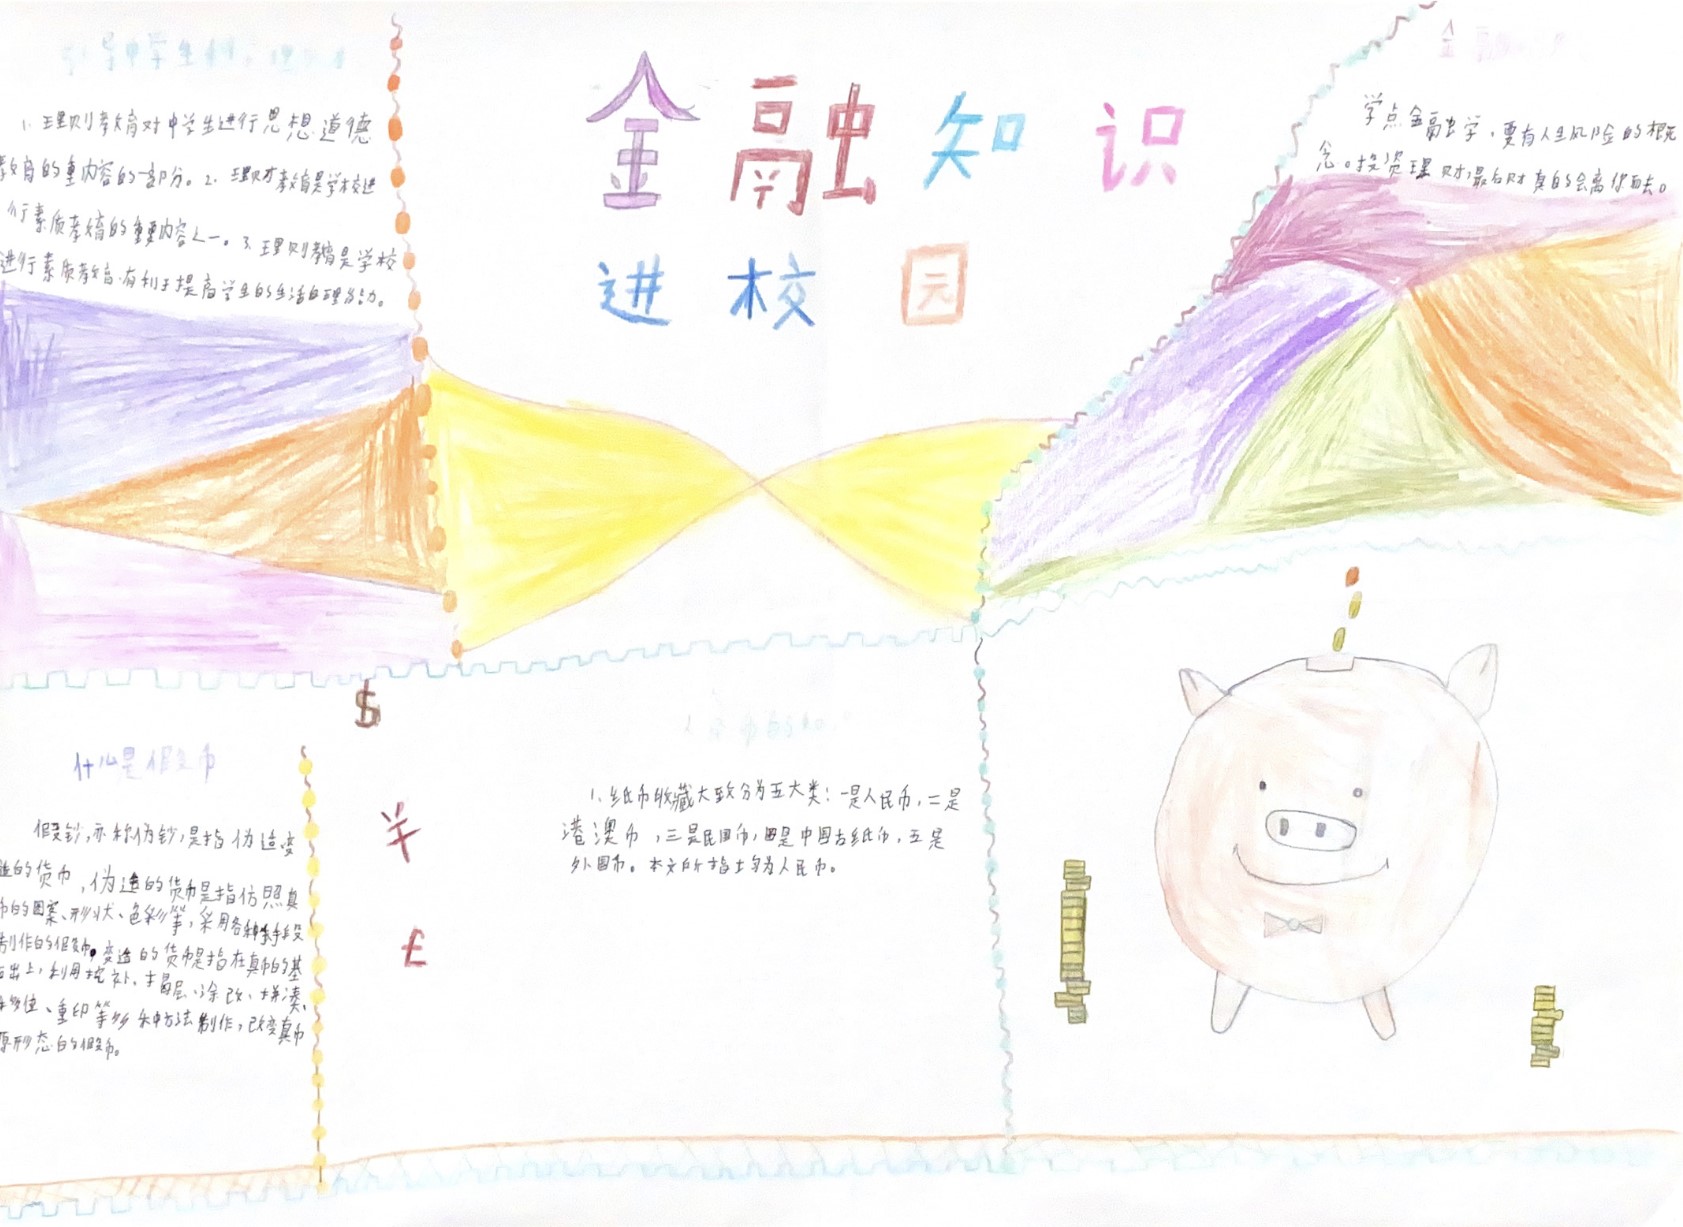 金融知识
进校园
1. 理财教育对中学生进行思想道德
教育的重内容的一部分。2. 理财教育是学校进
行素质教育的重要内容之一。3. 理财教育是学校
进行素质教育,有利于提高学生的生活自理能力。
学点金融学,要有人生风险的概
念。投资理财,最后财真的会离你而去。
什么是假币
假钞,亦称伪钞,是指伪造变
造的货币,伪造的货币是指仿照真
币的图案、形状、色彩等,采用各种手段
制作的假币。变造的货币是指在真币的基
础上,利用挖补、揭层、涂改、拼凑、
移位、重印等多种方法制作,改变真币
原形态的假币。
$
羊
£
1. 纸币收藏大致分为五大类:一是人民币,二是
港澳币,三是民国币,四是中国古纸币,五是
外国币。本文所指均为人民币。